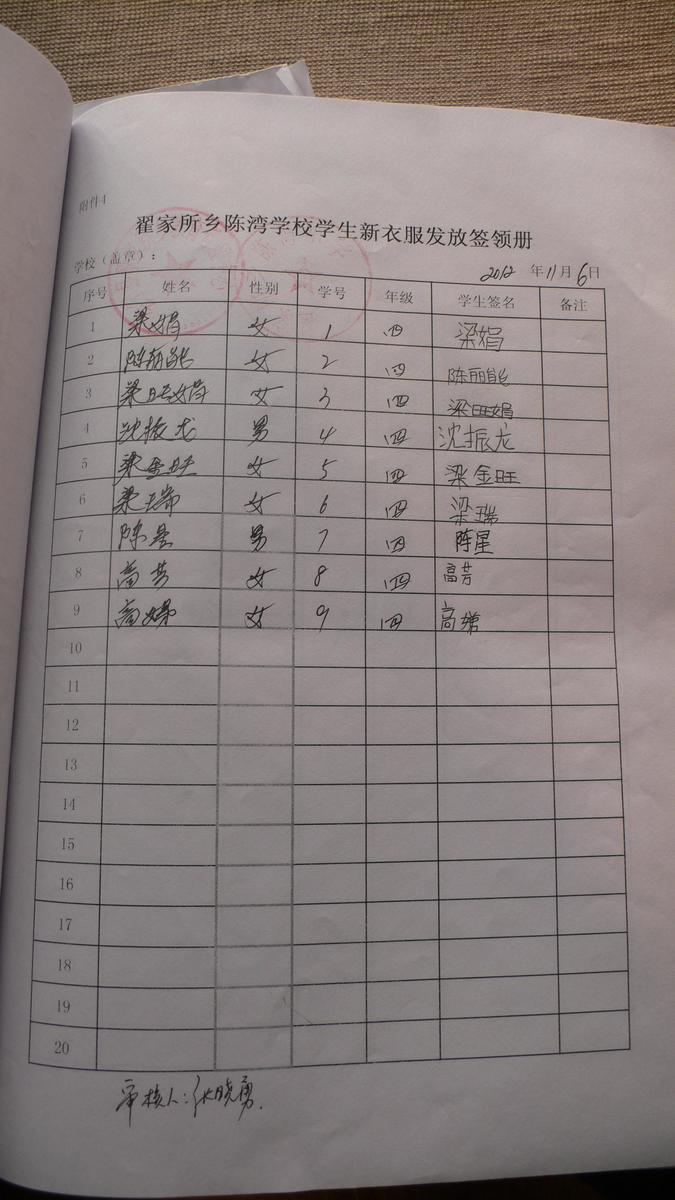 附件4
翟家所乡陈湾学校学生新衣服发放签领册
学校（盖章）： 2012 年 11 月 6 日
序号 姓名 性别 学号 年级 学生签名 备注
1 梁娟 女 1 四 梁娟
2 陈丽能 女 2 四 陈丽能
3 梁旺娟 女 3 四 梁旺娟
4 沈振龙 男 4 四 沈振龙
5 梁金旺 女 5 四 梁金旺
6 梁瑞 女 6 四 梁瑞
7 陈星 男 7 四 陈星
8 高芳 女 8 四 高芳
9 高娣 女 9 四 高娣
10
11
12
13
14
15
16
17
18
19
20
审核人：张晓勇